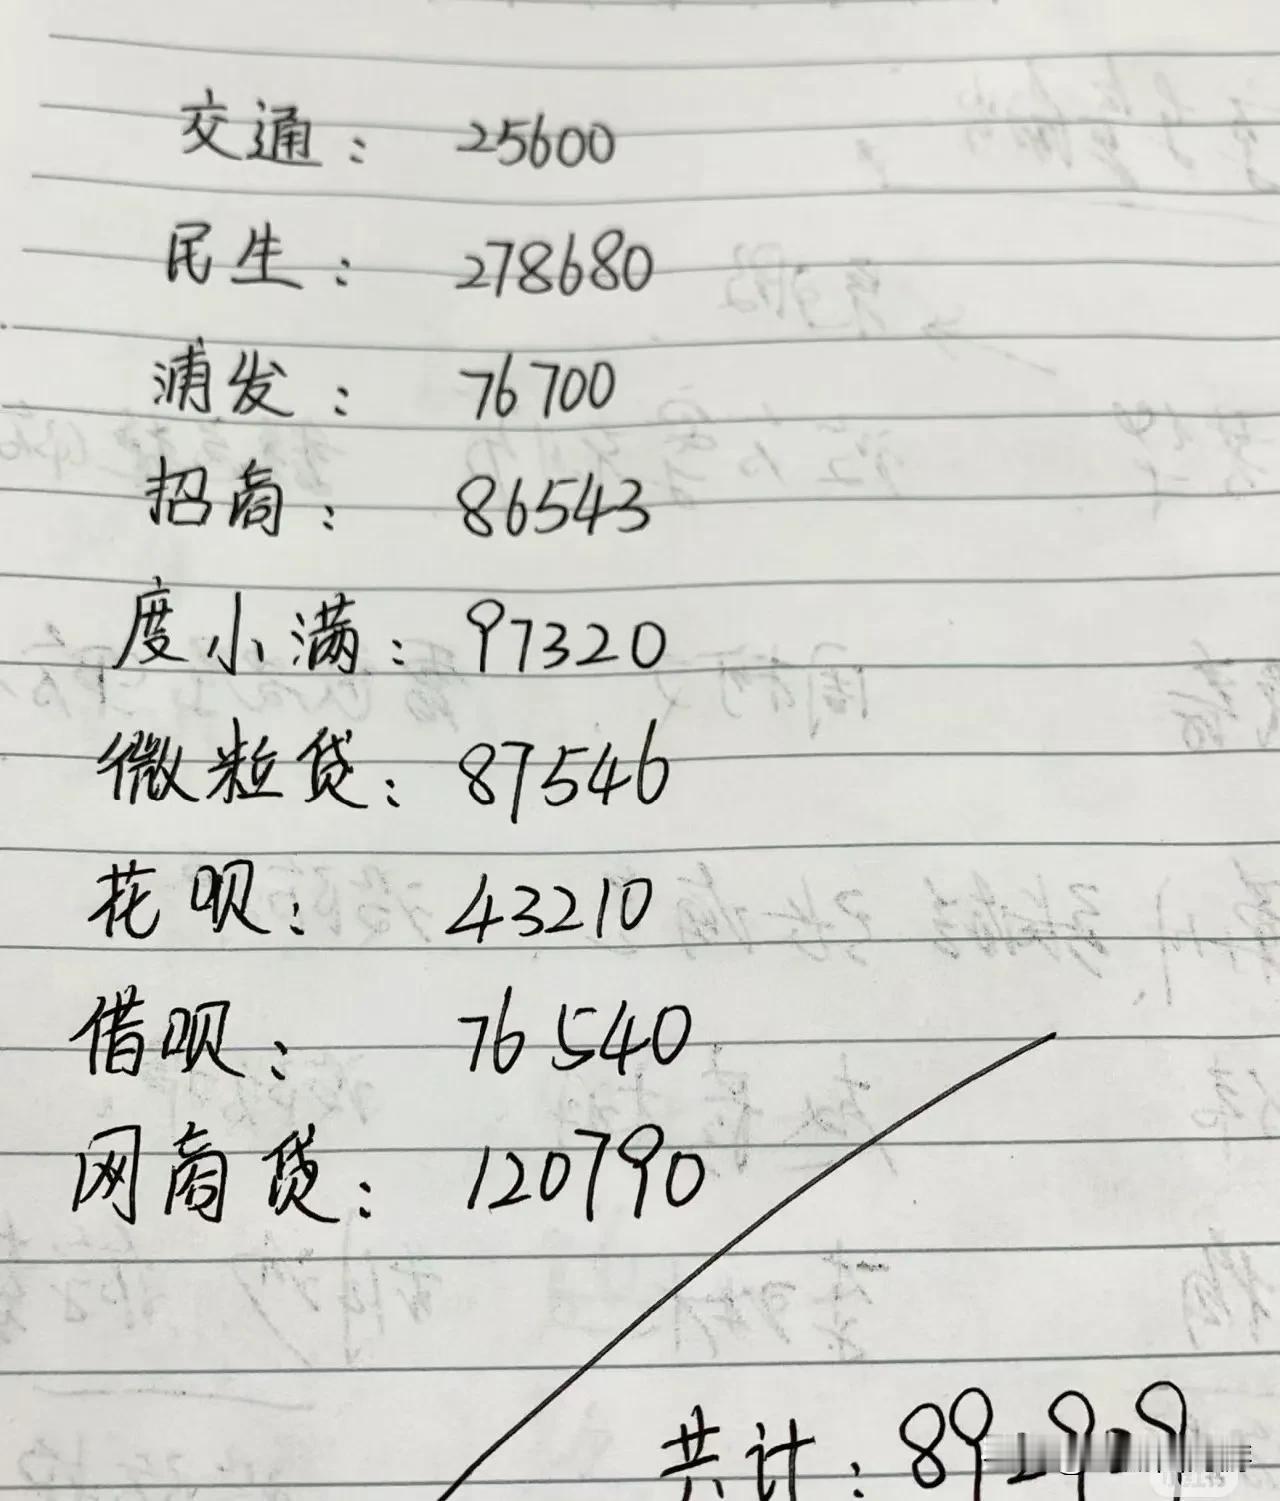 交通：25600
民生：278680
浦发：76700
招商：86543
度小满：97320
微粒贷：87546
花呗：43210
借呗：76540
网商贷：120790
共计：892929